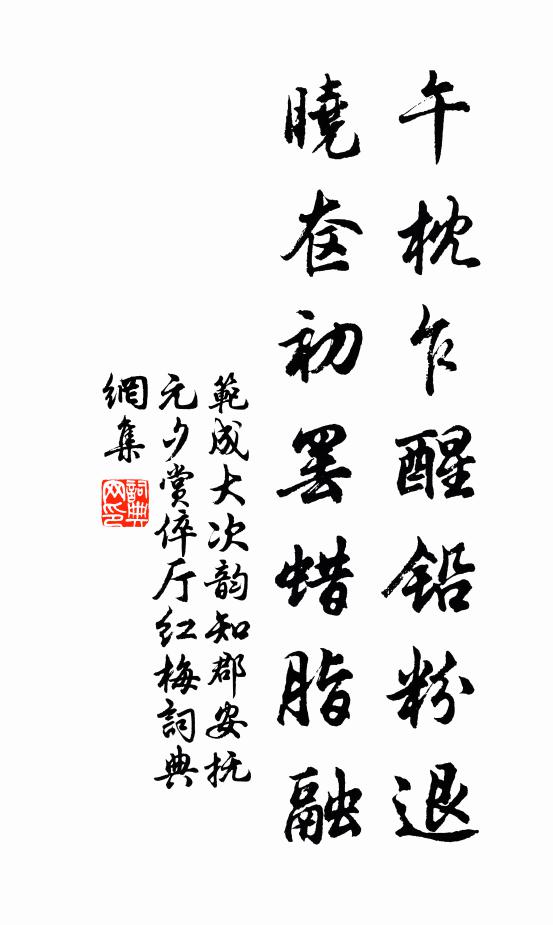 午枕乍醒铅粉退
曉奁初罢蜡脂融
範成大次韵知郡安抚
元夕赏倅厅红梅詞典
網集
詞典
网印